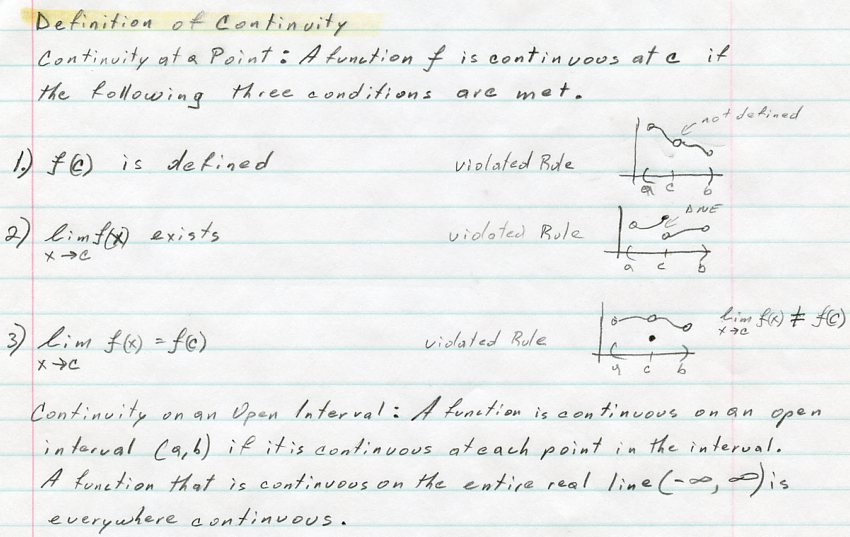 Definition of Continuity
Continuity at a Point: A function f is continuous at c if
the following three conditions are met.
not defined
1.) f(c) is defined
violated Rule
a c b
DNE
2) lim f(x) exists
x→c
violated Rule
a c b
3) lim f(x) = f(c)
x→c
violated Rule
lim f(x) ≠ f(c)
x→c
a c b
Continuity on an Open Interval: A function is continuous on an open
interval (a,b) if it is continuous at each point in the interval.
A function that is continuous on the entire real line (-∞, ∞) is
everywhere continuous.